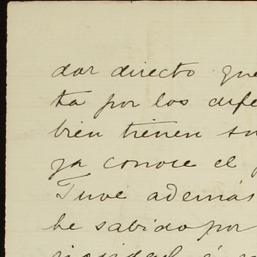 dar directo que
ta por los dife
bien tienen su
ya conoce el
Tuve además
he sabido por